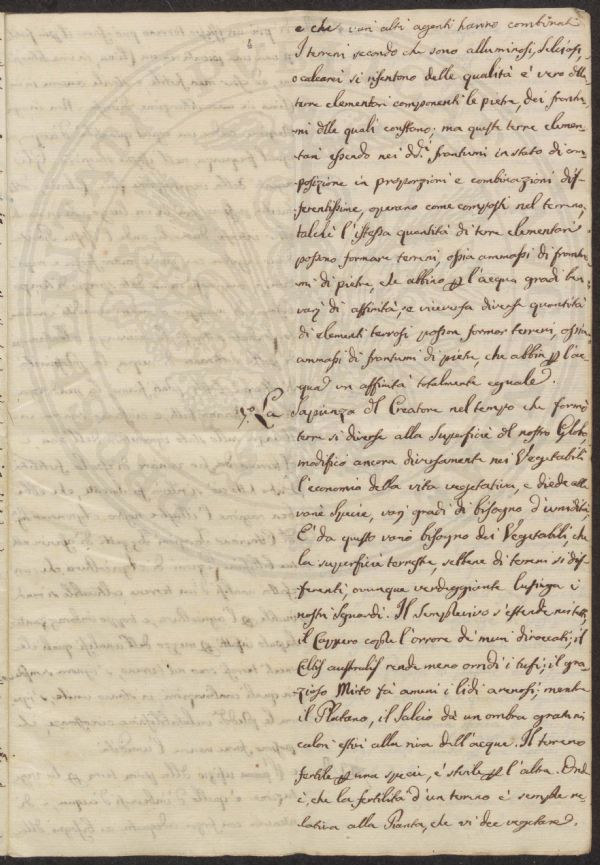 e che varj altri agenti hanno combinati
I terreni secondo che sono alluminosi, selciosi,
o calcarei si risentono delle qualità è vero dlle
terre elementari componenti le pietre, dei frantu-
mi dlle quali constono; ma queste terre elemen-
tari essendo nei dd.i frantumi in stato di com-
posizione in proporzioni e combinazioni dif-
ferentissime, operano come composti nel terreno,
talchè l'istessa quantità di terre elementari
possono formare terreni, ossia ammassi di frantu-
mi di pietre, che abbino p l'acqua gradi ben
varj di affinità, e viceversa diverse quantità
di elementi terrosi posson formar terreni, ossia
ammassi di frantumi di pietre, che abbin p l'ac-
qua un affinità totalmente eguale.
La Sapienza dl Creatore nel tempo che formò
terre sì diverse alla superficie dl nostro Globo,
modificò ancora diversamente nei Vegetabili
l'economia della vita vegetativa, e diede alle
varie Specie, varj gradi di bisogno d'umidità;
E' da questo vario bisogno dei Vegetabili, che
la superficie terrestre, sebbene di terreni sì dif-
ferenti, ovunque verdeggiante lusinga i
nostri sguardi. Il Semprevivo s'estende nei tetti,
il Cappero copre l'orrore de' muri diroccati; il
australis rende meno orridi i tufi; il gra-
zioso Mirto fà ameni i lidi arenosi; mentre
il Platano, il Salcio dà un ombra grata ni
calori estivi alla riva dell'acque. Il terreno
fertile p una specie, è sterile p l'altra. Onde
è, che la fertilità d'un terreno è sempre re-
lativa alla Pianta, che vi dee vegetare.